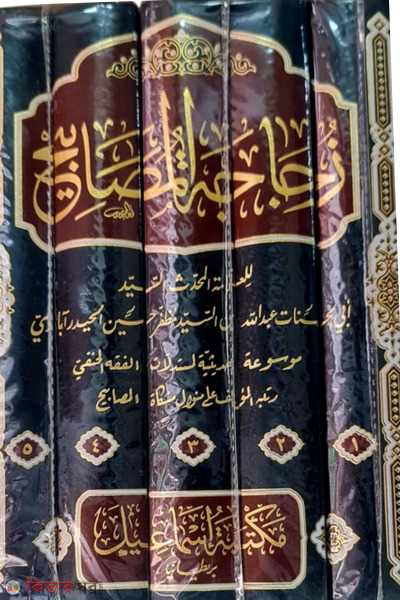 زُجَاجَةُ المَصَابِيح
للعلامة المحدث السيد
أبي الحسنات عبدالله بن السيد مظفر حسين الحيدرآبادي
موسوعة حديثية لمستدلات الفقه الحنفي
رتبه المؤلف على منوال مشكاة المصابيح
١ ٢ ٣ ٤ ٥
مكتبة اسماعيل
بريطانيا
কিতাব ঘর